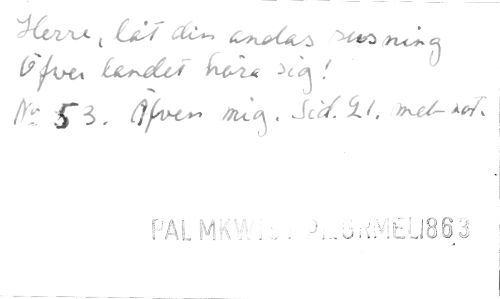 Herre, låt din andas susning
Öfver landet höra sig!
No 53. Äfven mig. Sid. 21. med not.
PALMKW